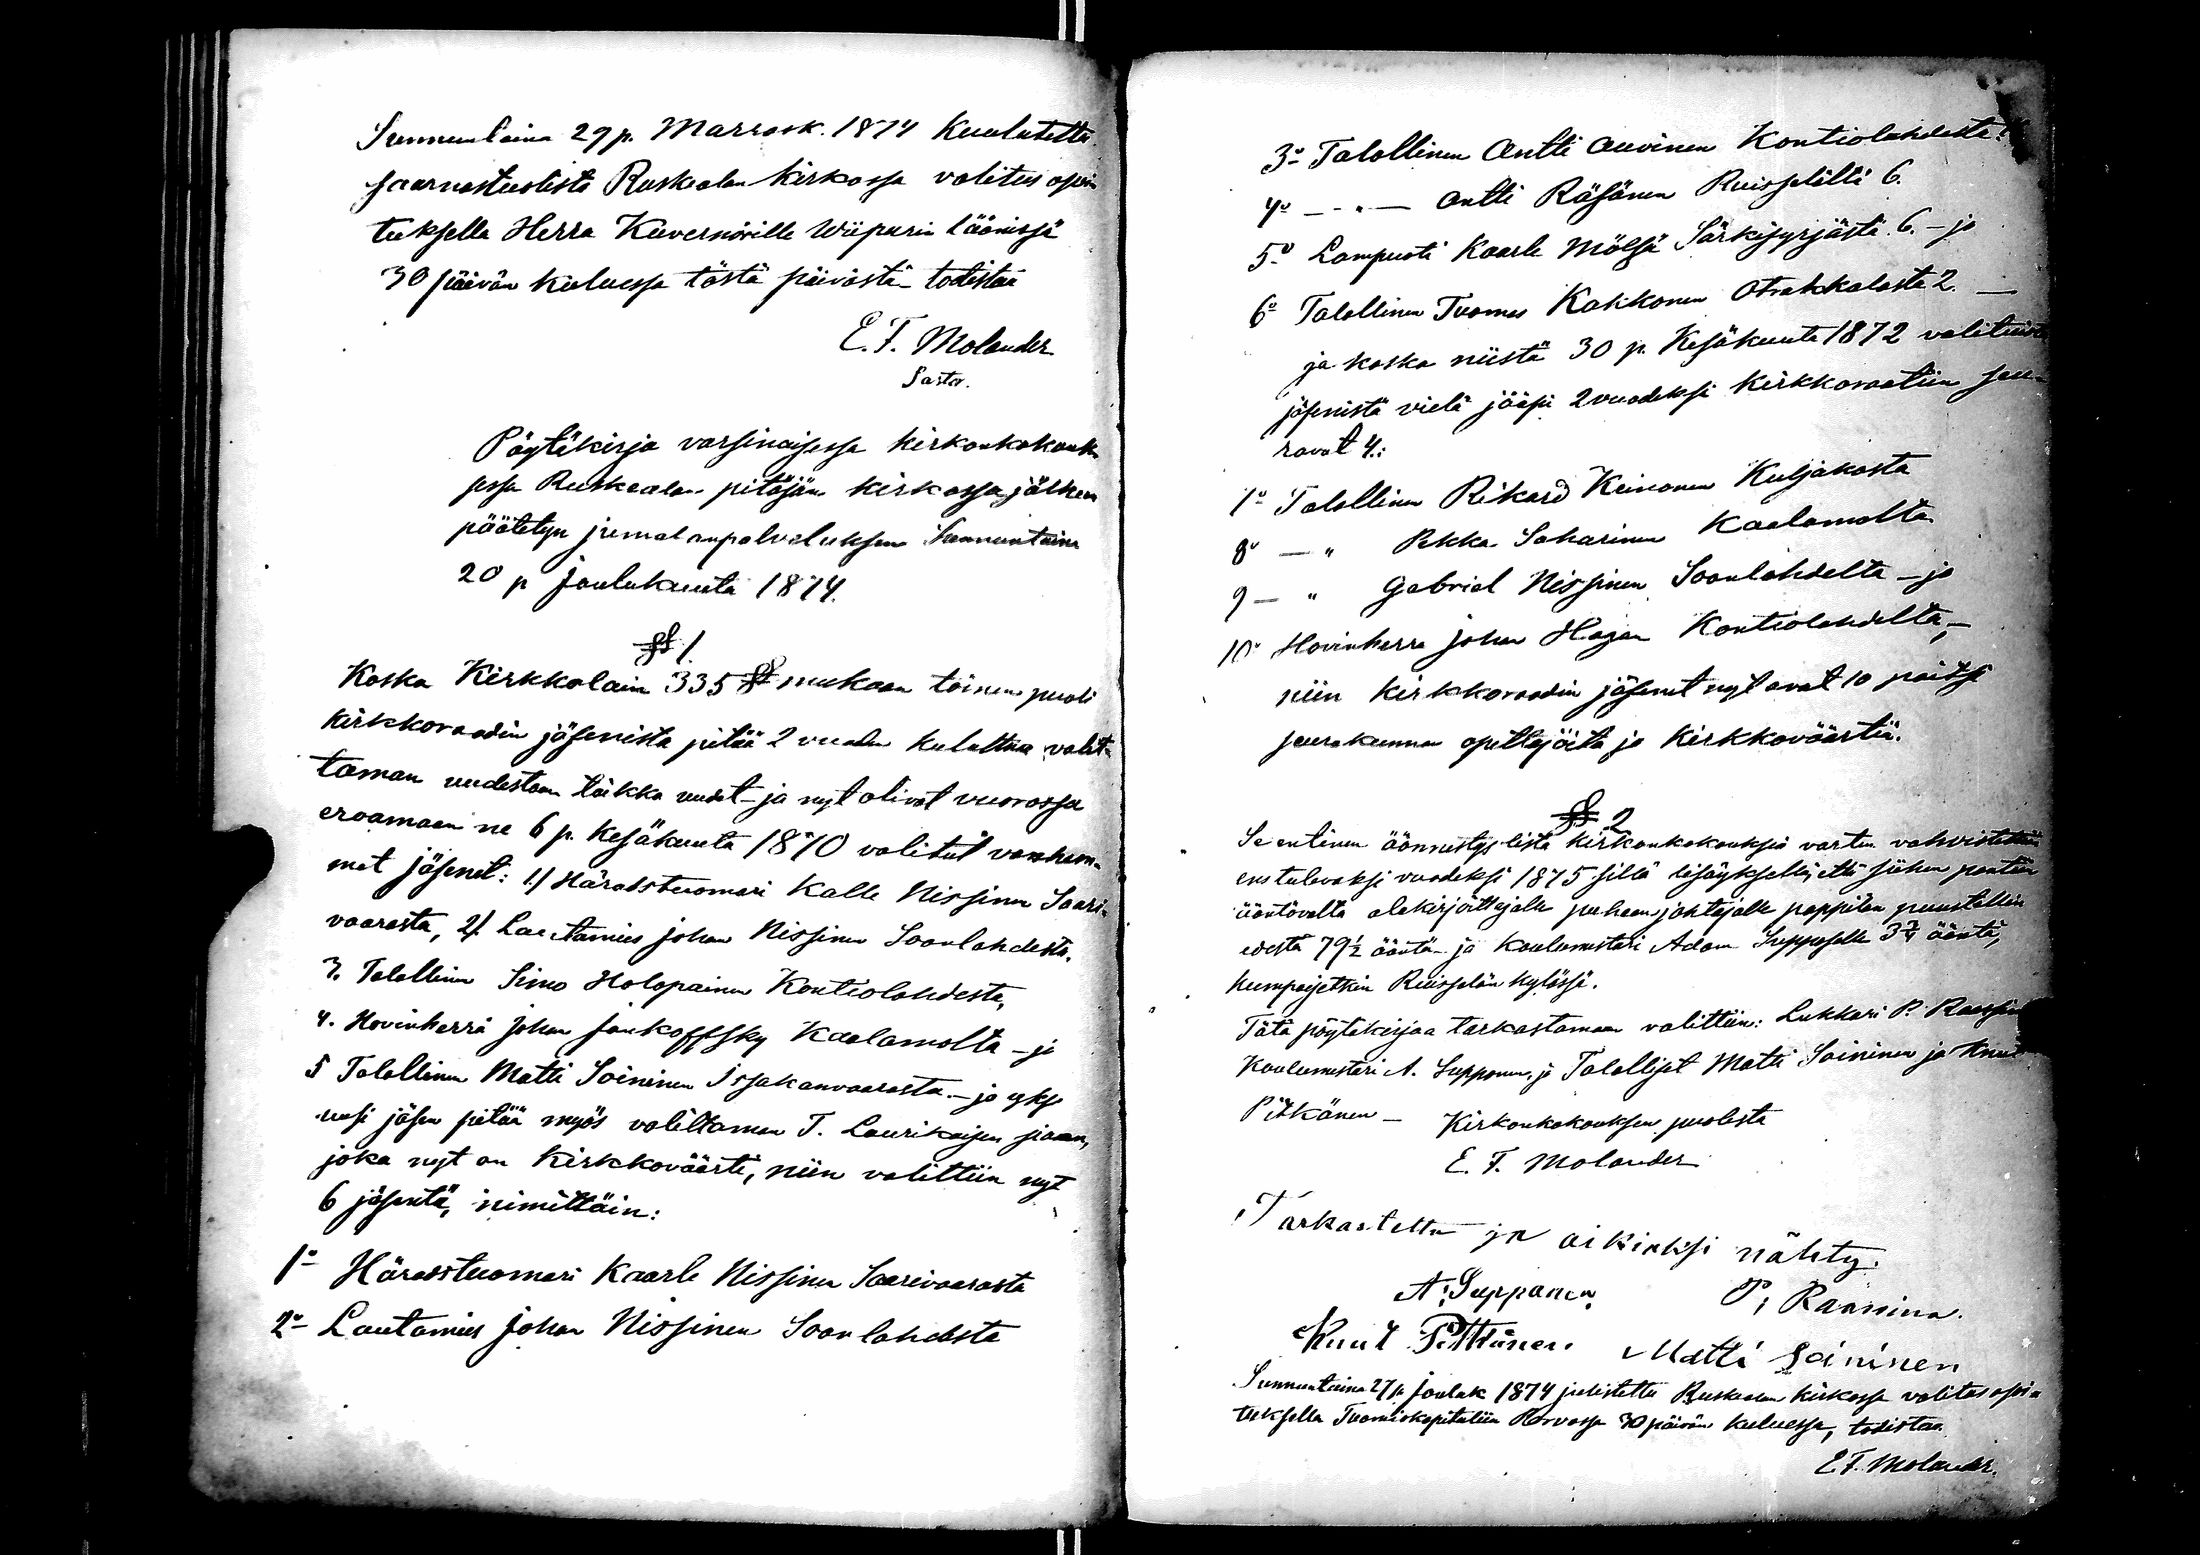 Sunnuntaina 29 p. Marrask. 1874 Kuulutettu
saarnastuolista Ruskealan kirkossa valitus osoi-
tuksella Herra Kuvernörille Wiipurin läänissä
30 päivän kuluessa tästä päivästä todistaa
E. F. Molander
Pastor.
Pöytäkirja varsinaisessa kirkonkokouk-
sessa Ruskealan pitäjän kirkossa jälkeen
päätetyn jumalanpalveluksen Sunnuntaina
20 p Joulukuuta 1874.
§ 1.
Koska Kirkkolain 335 § mukaan toinen puoli
kirkkoraadin jäsenistä pitää 2 vuoden kuluttua valit-
taman uudestaan taikka uudet – ja nyt olivat vuorossa
eroamaan ne 6 p. Kesäkuuta 1870 valitut vanhem-
mat jäsenet: 1/ Häradstuomari Kalle Nissinen Saari-
vaarasta, 2/ Lautamies Johan Nissinen Soanlahdesta,
3. Talollinen Simo Holopainen Kontiolahdesta,
4. Hovinherra Johan Jankoffsky Kaalamolta – ja
5 Talollinen Matti Soininen Issakanvaarasta. – ja yksi
uusi jäsen pitää myös valittaman T. Laurikaisen siaan,
joka nyt on Kirkkoväärti, niin valittiin nyt
6 jäsentä, nimittäin:
1º Häradstuomari Kaarle Nissinen Saarivaarasta
2º Lautamies Johan Nissinen Soanlahdesta
3º Talollinen Antti Auvinen Kontiolahdesta
4º – " – Antti Räsänen Ruisselältä 6.
5º Lampuoti Kaarle Mölsä Särkisyrjästä 6. – ja
6º Talollinen Tuomas Kakkonen Otrakkalasta 2. –
ja koska niistä 30 p. Kesäkuuta 1872 valituista
jäsenistä vielä jääpi 2 vuodeksi Kirkkoraatiin seu-
raavat 4.:
7º Talollinen Rikard Keinonen Kuljakosta
8º – " Pekka Saharinen Kaalamolta
9 – " Gabriel Nissinen Soanlahdelta – ja
10º Hovinherra Johan Hagan Kontiolahdelta, –
niin kirkkoraadin jäsenet nyt ovat 10 paitsi
seurakunnan opettajöita ja Kirkkoväärtiä.
§ 2
Se entinen äännestys lista kirkonkokouksia varten vahvistettiin
ens tulevaksi vuodeksi 1875 sillä lisäyksellä, että siihen pantiin
ääntövalta alakirjoittajalle puheenjohtajalle pappilan puustellin
edestä 79½ ääntä – ja Koulumestari Adam Supposelle 3¾ ääntä,
kumpasetkin Ruisselän kylässä.
Tätä pöytäkirjaa tarkastamaan valittiin: Lukkari P. Raassina
Koulumestari A. Supponen, ja Talolliset Matti Soininen ja Knut
Pitkänen – Kirkonkokouksen puolesta
E. F. Molander
Tarkastettu ja oikiaksi nähty.
A. Supponen P. Raassina.
Knut Pitkänen Matti Soininen
Sunnuntaina 27 p. Jouluk 1874 julistettu Ruskealan kirkossa valitus osoi-
tuksella Tuomiokapituliin Porvossa 30 päivän kuluessa, todistaa
E. F. Molander.